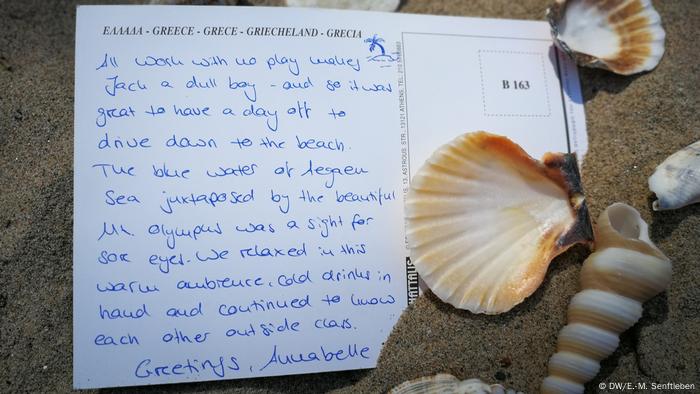 ΕΛΛΑΔΑ - GREECE - GRECE - GRIECHELAND - GRECIA
All work with no play makes
Jack a dull boy - and so it was
great to have a day off to
drive down to the beach.
The blue water of Aegaen
Sea juxtaposed by the beautiful
Mt. Olympus was a sight for
sore eyes. We relaxed in this
warm ambience, cold drinks in
hand and continued to know
each other outside class.
Greetings, Annabelle
B 163
13, ASTROUS, STR., 13121 ATHENS, TEL. 210
© DW/E.-M. Senftleben